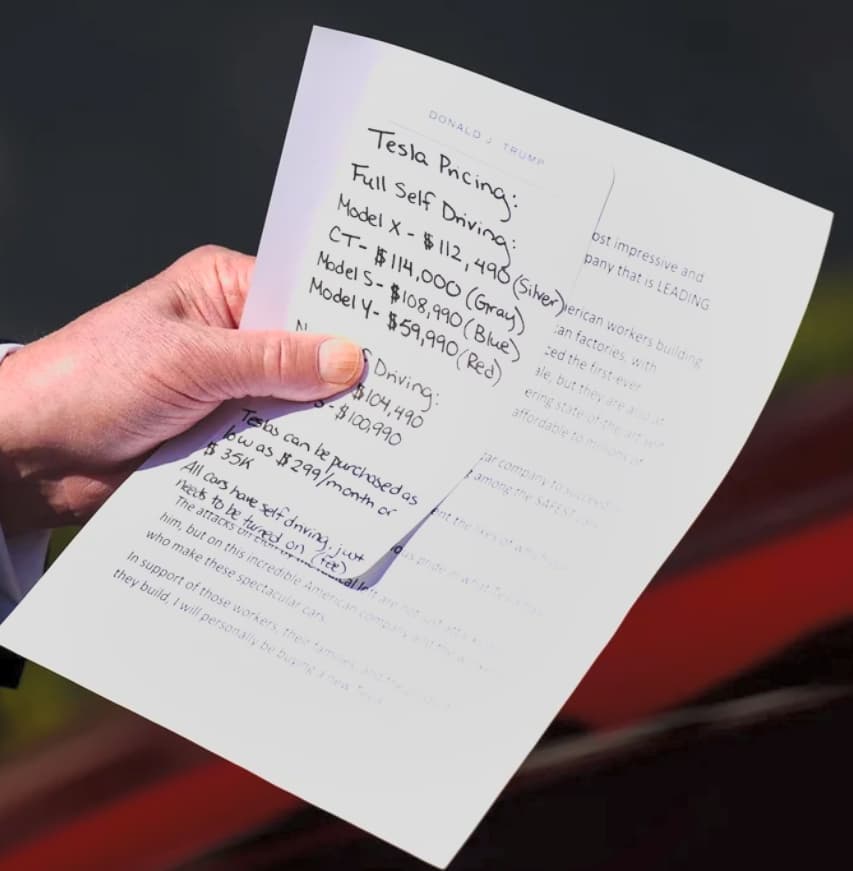 DONALD J. TRUMP
Tesla Pricing:
Full Self Driving:
Model X - $112,490 (Silver)
CT - $114,000 (Gray)
Model S - $108,990 (Blue)
Model Y - $59,990 (Red)
Driving:
$104,490
S - $100,990
Teslas can be purchased as
low as $299/month or
$35K
All cars have self driving, just
needs to be turned on (fee)
ost impressive and
pany that is LEADING
erican workers building
an factories, with
ced the first-ever
ale, but they are also at
ering state-of-the-art
affordable to millions of
car company to succeed
among the SAFEST
ent the lives of
pride in what
The attacks on left are not just
him, but on this incredible American company and the
who make these spectacular cars.
In support of those workers, their families, and the
they build, I will personally be buying a new Tesla